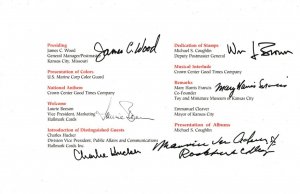 Presiding
James C. Wood
General Manager/Postmaster
Kansas City, Missouri
Presentation of Colors
U.S. Marine Corp Color Guard
National Anthem
Crown Center Good Times Company
Welcome
Laurie Beeson
Vice President, Marketing
Hallmark Cards
Introduction of Distinguished Guests
Charles Hucker
Division Vice President, Public Affairs and Communications
Hallmark Cards Inc.
James C. Wood
Charlie Hucker
Dedication of Stamps
Michael S. Coughlin
Deputy Postmaster General
Musical Interlude
Crown Center Good Times Company
Remarks
Mary Harris Francis
Co-Founder
Toy and Miniature Museum of Kansas City
Emmanuel Cleaver
Mayor of Kansas City
Presentation of Albums
Michael S. Coughlin
Wm J Brown
Mary Harris Francis